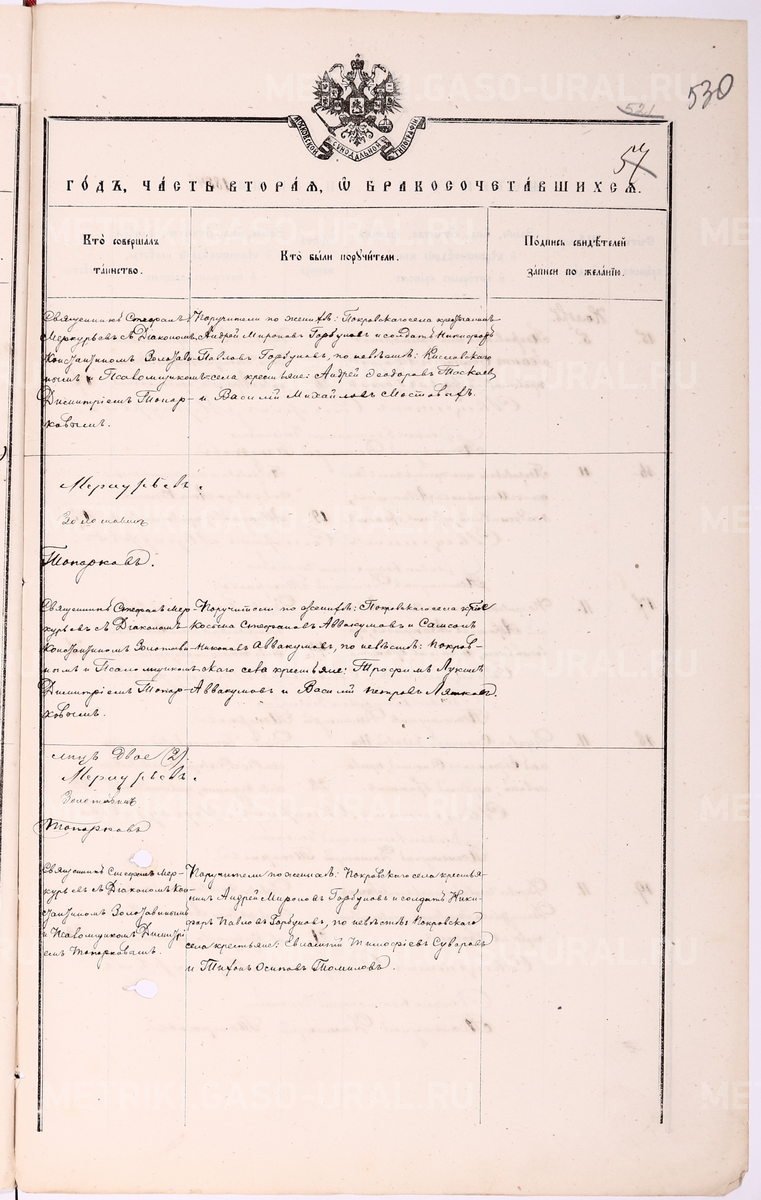 530
521
57
МОСКОВСКОЙ СѴНОДАЛЬНОЙ ТИПОГРАФІИ
ГОДЪ, ЧАСТЬ ВТОРАЯ, Ѡ БРАКОСОЧЕТАВШИХСЯ.
Кто совершалъ таинство.
Кто были поручители.
Подпись свидѣтелей записи по желанію.
Священникъ Стефанъ
Меркурьевъ съ Діакономъ
Константиномъ Золотав-
нымъ и Псаломщикомъ
Димитріемъ Топор-
ковымъ.
Поручители по женихѣ: Покровскаго села крестьянинъ
Андрей Мироновъ Горбуновъ и солдатъ Никифоръ
Павловъ Горбуновъ, по невѣстѣ: Кисловскаго
села крестьяне: Андрей Ѳеодоровъ
и Василій Михайловъ
Меркурьевъ.
Топорковъ.
Священникъ Стефанъ Мер-
курьевъ съ Діакономъ
Константиномъ Золотав-
нымъ и Псаломщикомъ
Димитріемъ Топор-
ковымъ.
Поручители по женихѣ: Покровскаго села кр-не
Косьма Стефановъ Аввакумовъ и Самсонъ
Никоновъ Аввакумовъ, по невѣстѣ: Покров-
скаго села крестьяне: Трофимъ Лукинъ
Аввакумовъ и Василій Петровъ
лицъ Двое (2).
Меркурьевъ.
Топорковъ
Священникъ Стефанъ Мер-
курьевъ съ Діакономъ Кон-
стантиномъ Золотавинымъ
и Псаломщикомъ Димитрі-
емъ Топорковымъ.
Поручители по женихѣ: Покровскаго села крестья-
нинъ Андрей Мироновъ Горбуновъ и солдатъ Ники-
форъ Павловъ Горбуновъ, по невѣстѣ: Покровскаго
села крестьяне: Евлампій Тимофіевъ Суворовъ
и Тихонъ Осиповъ Томиловъ.
METRIKI.GASO-URAL.RU